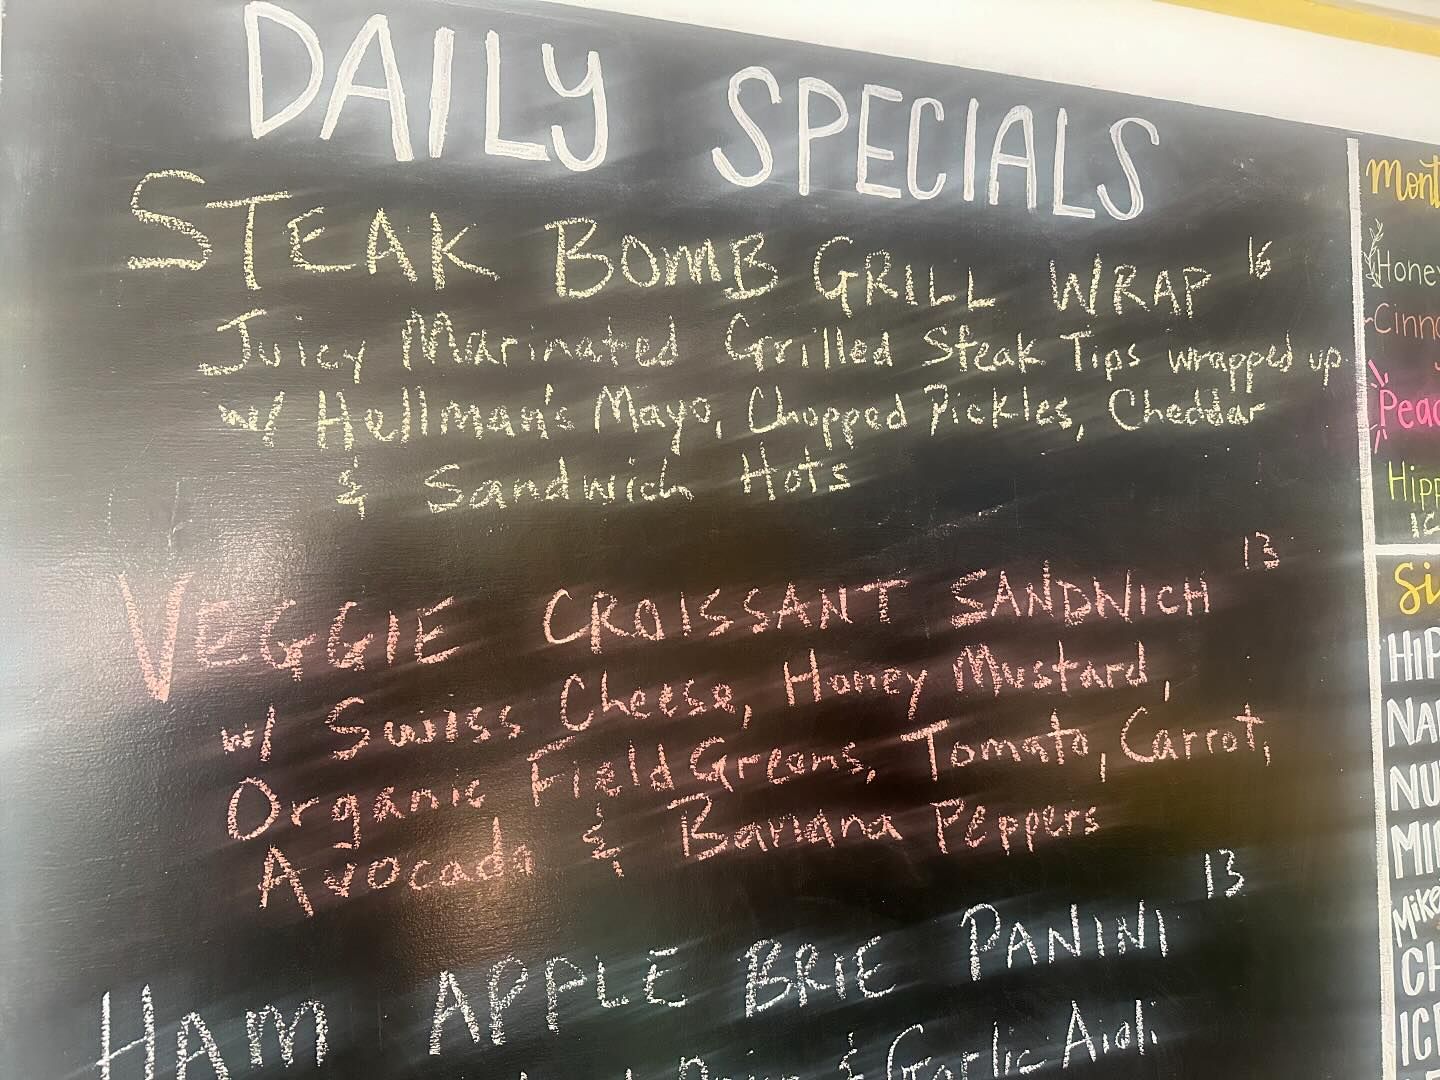 DAILY SPECIALS
STEAK BOMB GRILL WRAP 16
Juicy Marinated Grilled Steak Tips wrapped up
w/ Hellman's Mayo, Chopped Pickles, Cheddar
& Sandwich Hots
VEGGIE CROISSANT SANDWICH 13
w/ Swiss Cheese, Honey Mustard,
Organic Field Greens, Tomato, Carrot,
Avocado & Banana Peppers
HAM APPLE BRIE PANINI 13
& Garlic Aioli
Honey